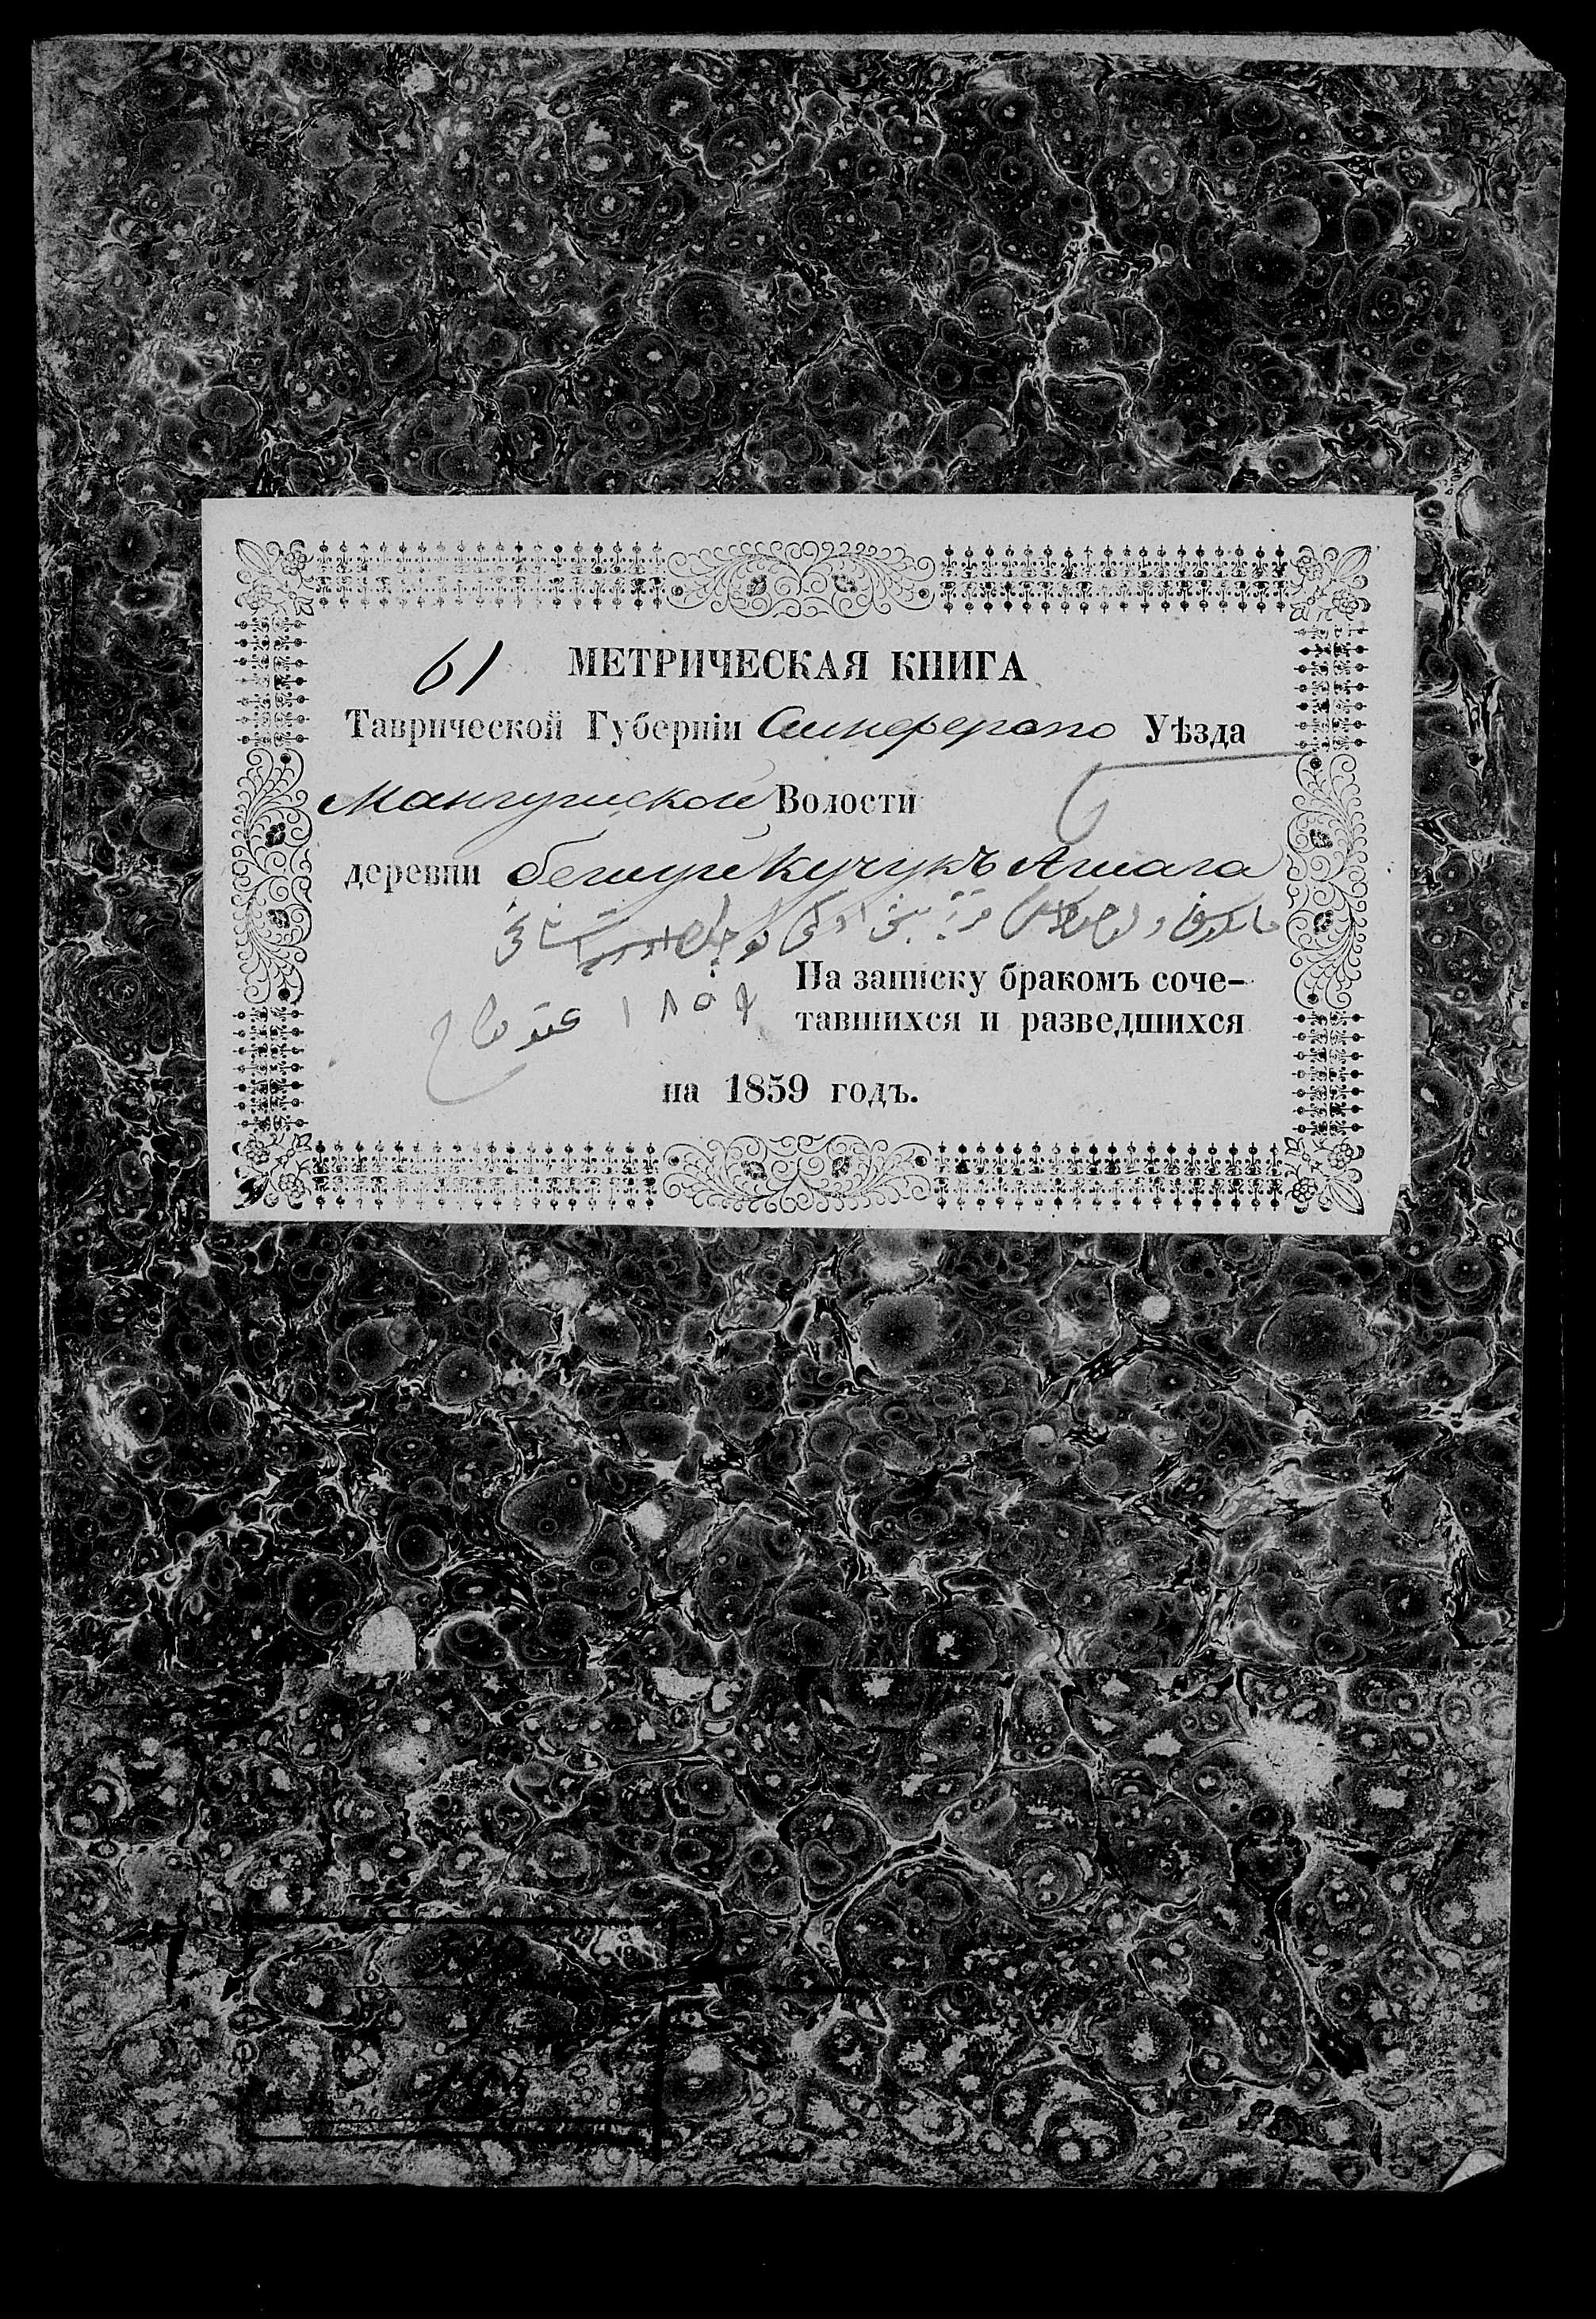 61 МЕТРИЧЕСКАЯ КНИГА
Таврической Губерніи Симферопо Уѣзда
Мангушской Волости
деревни бешуй Кучукъ Ашага
На записку бракомъ соче-
тавшихся и разведшихся
عقد نكاح ١٨٥٩
на 1859 годъ.